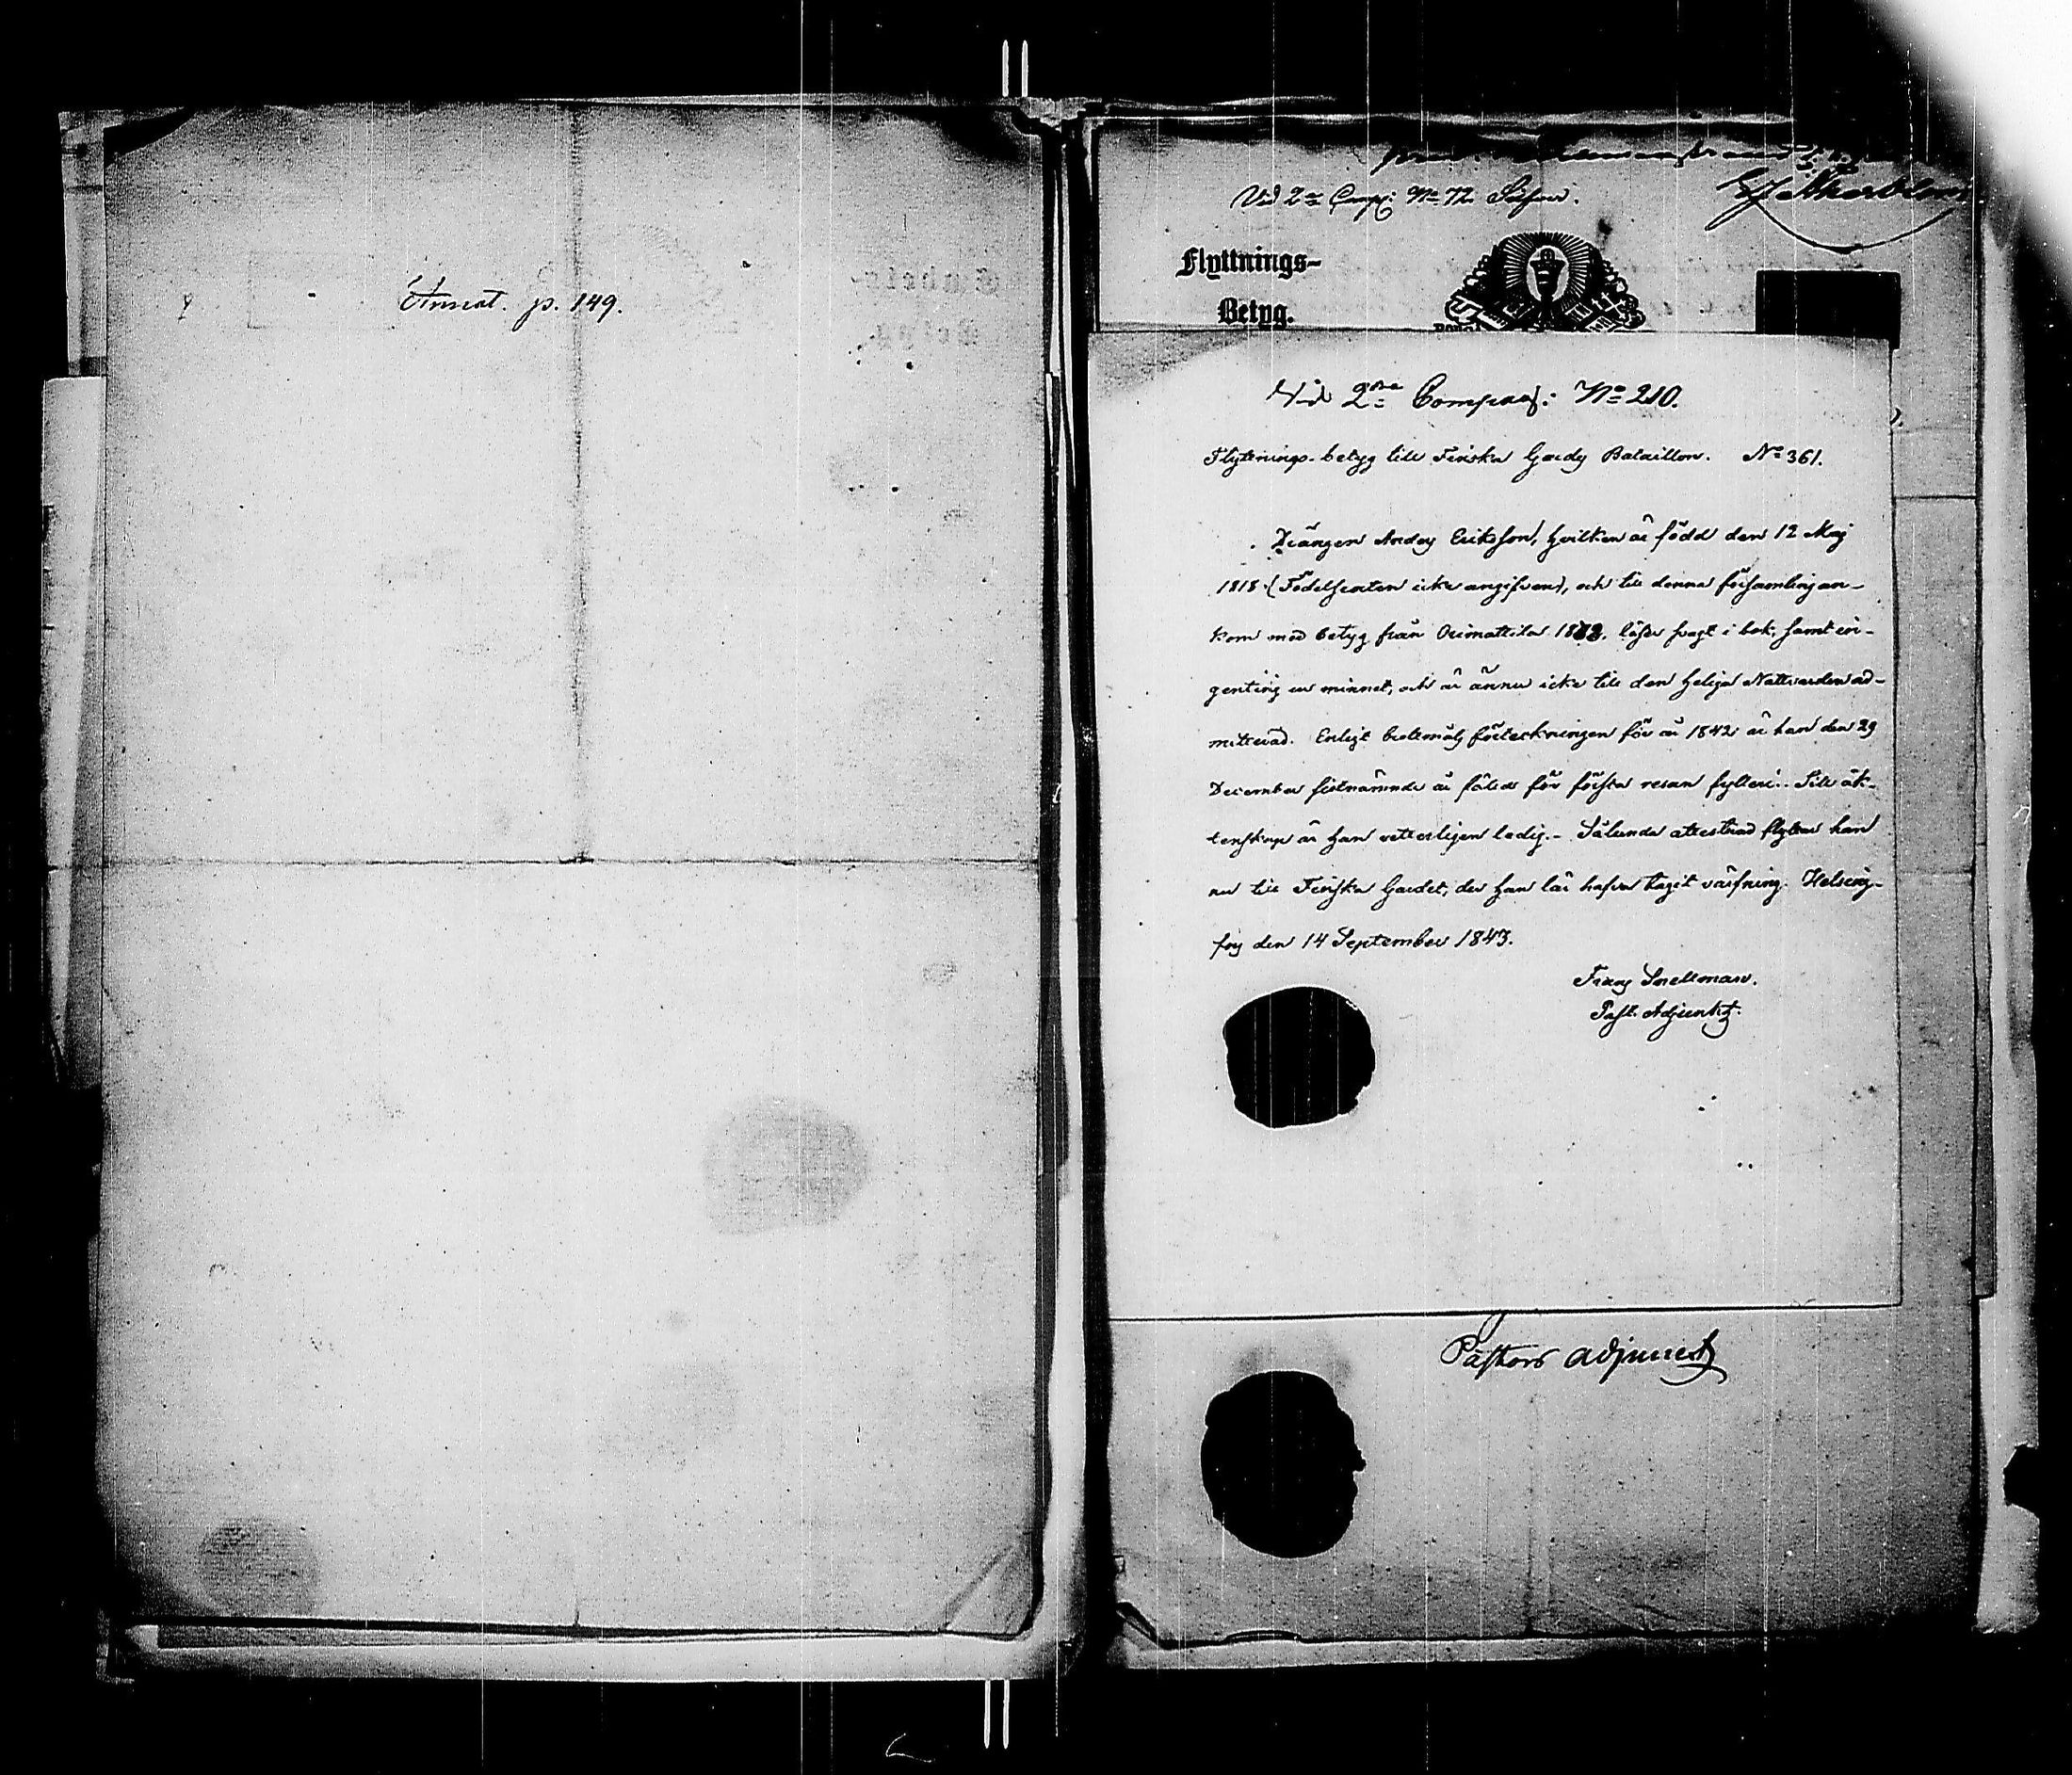 Annot. p. 149.
Vid 2ra Comp: No 72.
Flyttnings-
Betyg.
Vid 2ra Compag: No 210.
Flyttnings-betyg till Finska Gardes Bataillon. No 361.
Drängen Anders Eriksson, hvilken är född den 12 Maj
1818 (Födelseorten icke angifven), och till denna församling an-
kom med betyg från Orimattila 1838, läser svagt i bok, samt in-
genting ur minnet, och är ännu icke till den Heliga Nattvarden ad-
mitterad. Enligt brottmåls förteckningen för år 1842 är han den 29
December sistnämnde år fälld för första resan fylleri. Till äk-
tenskap är han vetterligen ledig. Sålunda attesterad flyttar han
nu till Finska Gardet, der han lär hafva tagit värfning. Helsing-
fors den 14 September 1843.
Frans Snellman.
Past. Adjunkt.
Pastors adjunct